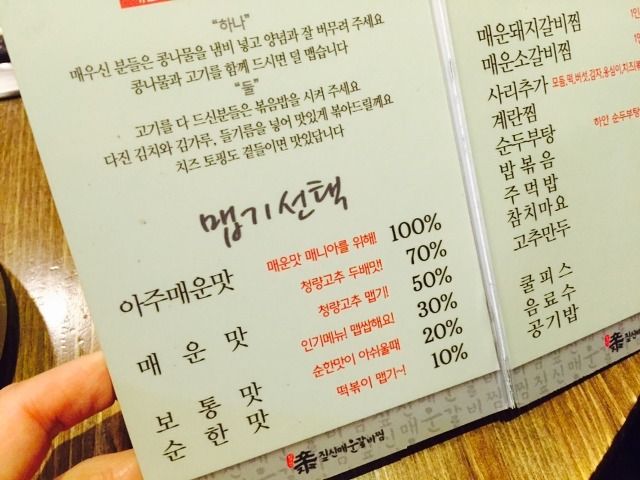 “하나”
매우신 분들은 콩나물을 냄비 넣고 양념과 잘 버무려 주세요
콩나물과 고기를 함께 드시면 덜 맵습니다
“둘”
고기를 다 드신분들은 볶음밥을 시켜 주세요
다진 김치와 김가루, 들기름을 넣어 맛있게 볶아드릴께요
치즈 토핑도 곁들이면 맛있답니다
맵기선택
아주매운맛
매운맛
보통맛
순한맛
매운맛 매니아를 위해! 100%
청량고추 두배맛! 70%
청량고추 맵기! 50%
인기메뉴! 맵쌉해요! 30%
순한맛이 아쉬울때 20%
떡볶이 맵기~! 10%
질신매운갈비찜
매운돼지갈비찜
매운소갈비찜
사리추가 모듬,떡,버섯,감자,옹심이,치즈
계란찜
순두부탕 하얀 순두부탕
밥볶음
주먹밥
참치마요
고추만두
쿨피스
음료수
공기밥
질신매운갈비찜